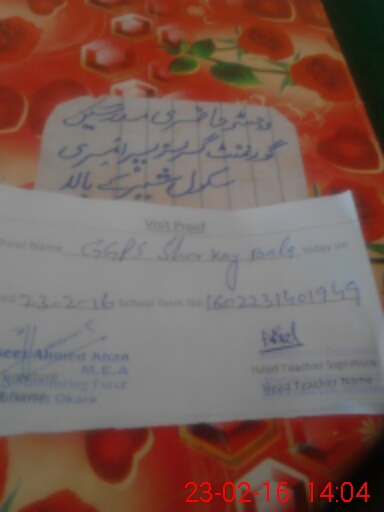 رجسٹر حاضری مدرسین
گورنمنٹ گرلز پرائمری
سکول شیر کے بالا
Visit Proof
School Name GGPS Sher Kay Bala Today on
23-2-16 School form No 1602231401949
Ahmed Khan
M.E.A
Head Teacher Signature
Head Teacher Name
Okara
23-02-16 14:04